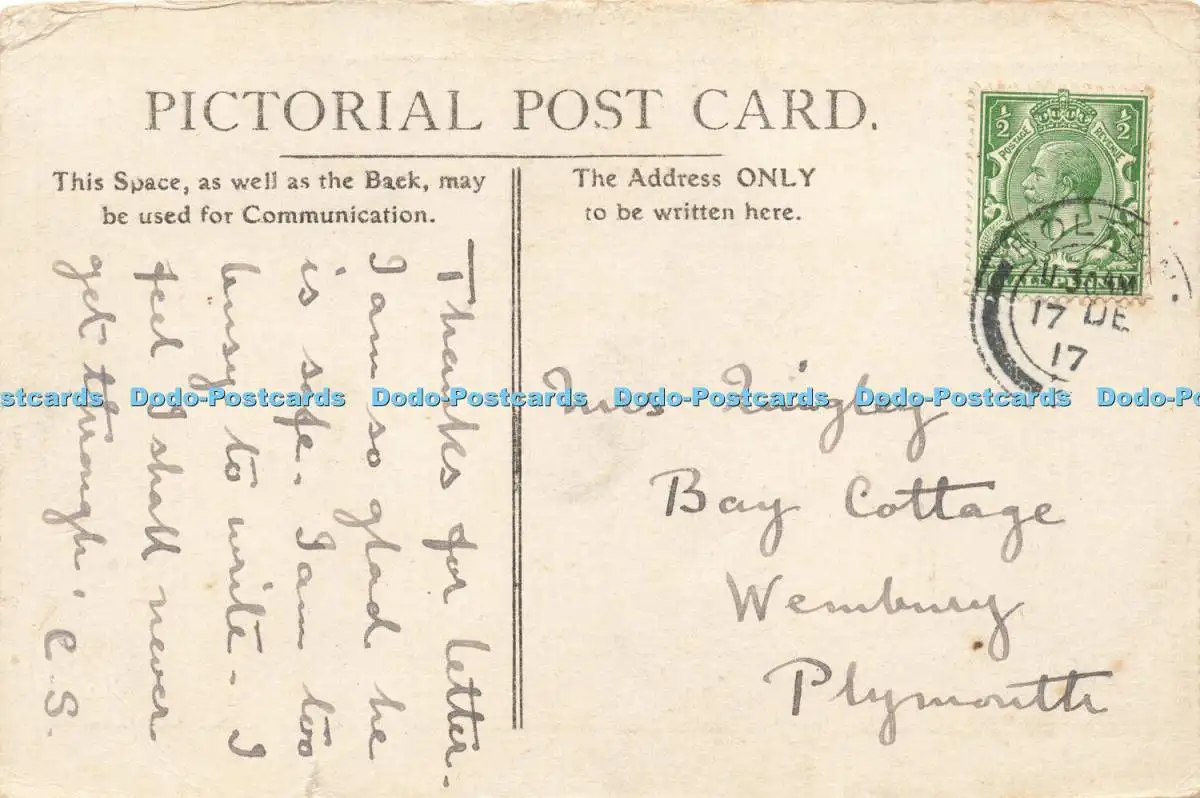 PICTORIAL POST CARD.
This Space, as well as the Back, may
be used for Communication.
The Address ONLY
to be written here.
½ ½
POSTAGE REVENUE
11 30 AM
17 DE
17
Thanks for letter.
I am so glad he
is safe. I am too
busy to write - I
feel I shall never
get through. C.S.
Bay Cottage
Wembury
Plymouth
Dodo-Postcards Dodo-Postcards Dodo-Postcards Dodo-Postcards Dodo-Postcards